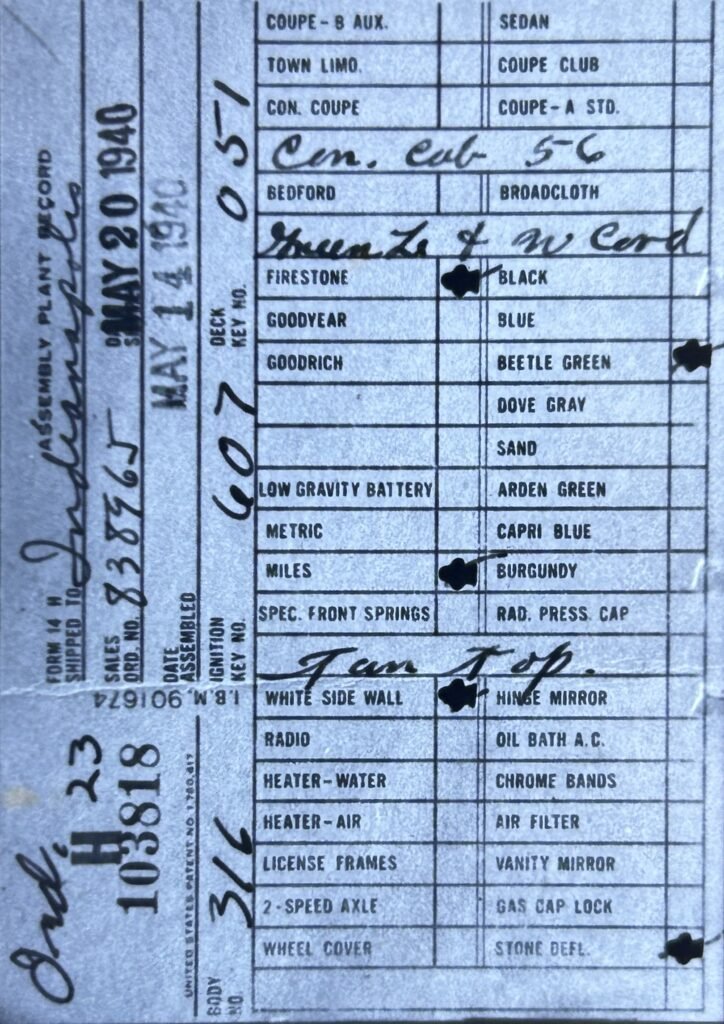 FORM 14 H ASSEMBLY PLANT RECORD
SHIPPED TO Indianapolis
SALES ORD. NO. 838965 MAY 20 1940
DATE ASSEMBLED MAY 14 1940
IGNITION KEY NO. 607 DECK KEY NO. 051
I.B.M. 901674
Ord. H 23
103818
UNITED STATES PATENT NO. 1,780,617
BODY NO. 316
COUPE-B AUX. SEDAN
TOWN LIMO. COUPE CLUB
CON. COUPE COUPE-A STD.
Con. Cab 56
BEDFORD BROADCLOTH
Green Le & W Cord
FIRESTONE BLACK
GOODYEAR BLUE
GOODRICH BEETLE GREEN
DOVE GRAY
SAND
LOW GRAVITY BATTERY ARDEN GREEN
METRIC CAPRI BLUE
MILES BURGUNDY
SPEC. FRONT SPRINGS RAD. PRESS. CAP
Tan Top.
WHITE SIDE WALL HINGE MIRROR
RADIO OIL BATH A.C.
HEATER-WATER CHROME BANDS
HEATER-AIR AIR FILTER
LICENSE FRAMES VANITY MIRROR
2-SPEED AXLE GAS CAP LOCK
WHEEL COVER STONE DEFL.